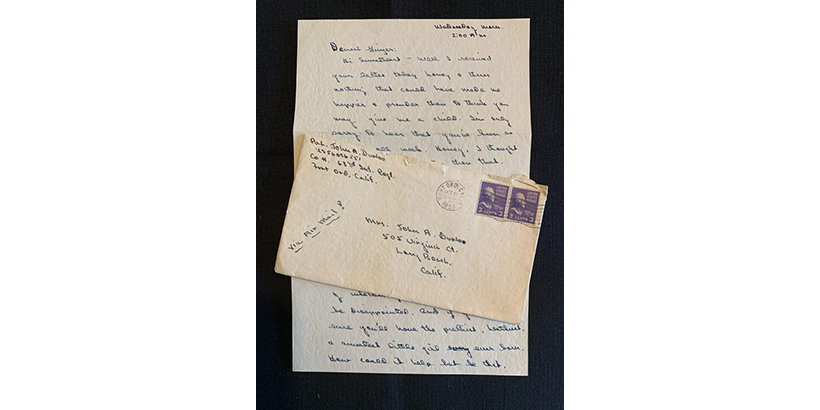 Wednesday morn.
2:00 A.M
Dearest Ginger:
Hi Sweetheart – Well I received
your letter today honey & there
nothing that could have made me
happier & prouder than to think you
may give me a child. I'm only
sorry to hear that you've been so
all week. Honey, I thought
then that.
Pvt. John A.
Co H. 63rd Inf. Regt.
Fort Ord, Calif.
Via Air Mail
Mrs. John A.
505 Virginia Ct.
Long Beach,
Calif.
3 CENTS 3
3 CENTS 3
be disappointed. And if
sure you'll have the prettiest,
& smartest little girl ever born.
How could it help but be that.